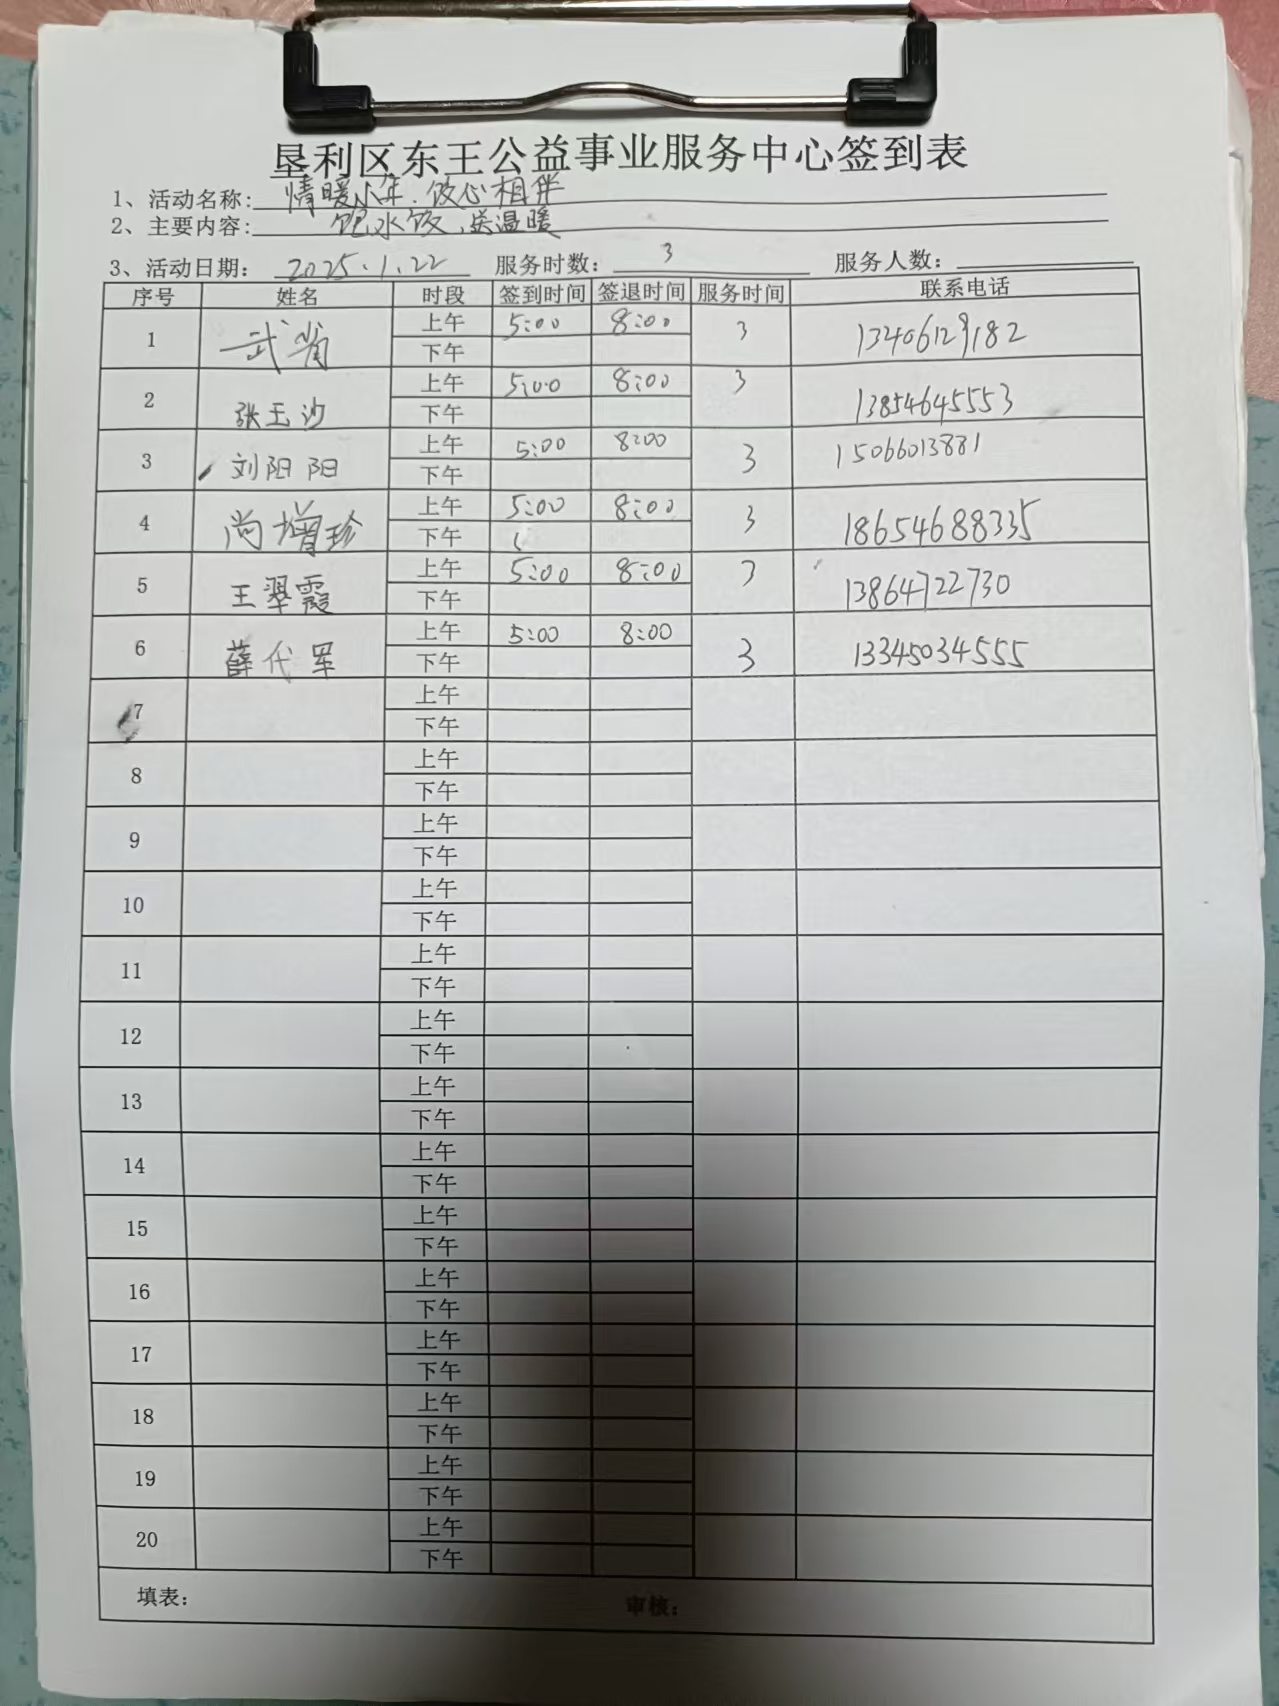 垦利区东王公益事业服务中心签到表
1、活动名称: 情暖小年.饺心相伴
2、主要内容: 饱水饺,送温暖
3、活动日期: 2025.1.22 服务时数: 3 服务人数:
序号 姓名 时段 签到时间 签退时间 服务时间 联系电话
1 武 上午 5:00 8:00 3 13406129182
下午
2 张玉沙 上午 5:00 8:00 3 13854645553
下午
3 刘阳阳 上午 5:00 8:00 3 15066013881
下午
4 尚增珍 上午 5:00 8:00 3 18654688335
下午
5 王翠霞 上午 5:00 8:00 3 13864722730
下午
6 薛代军 上午 5:00 8:00 3 13345034555
下午
7 上午
下午
8 上午
下午
9 上午
下午
10 上午
下午
11 上午
下午
12 上午
下午
13 上午
下午
14 上午
下午
15 上午
下午
16 上午
下午
17 上午
下午
18 上午
下午
19 上午
下午
20 上午
下午
填表: 审核: